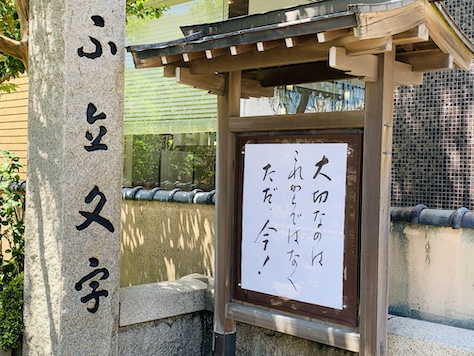 不立文字
大切なのは
これからではなく
ただ今！